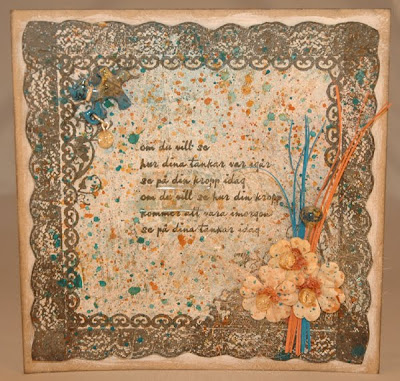 om du vill se
hur dina tankar var igår
se på din kropp idag
om du vill se hur din kropp
kommer att vara imorgon
se på dina tankar idag